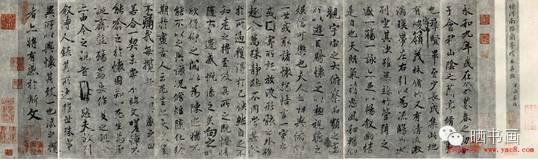 永和九年歲在癸丑暮春之初會
于會稽山陰之蘭亭脩稧事
也羣賢畢至少長咸集此地
有崇山峻領茂林脩竹又有清流激
湍暎帶左右引以為流觴曲水
列坐其次雖無絲竹管弦之
盛一觴一詠亦足以暢叙幽情
是日也天朗氣清惠風和暢仰
觀宇宙之大俯察品類之盛
所以遊目騁懷足以極視聽之
娛信可樂也夫人之相與俯仰
一世或取諸懷抱悟言一室之內
或因寄所託放浪形骸之外雖
趣舍萬殊靜躁不同當其欣
於所遇蹔得於己快然自足不
知老之將至及其所之既惓情
隨事遷感慨係之矣向之所
欣俛仰之間以為陳迹猶不
能不以之興懷況脩短隨化終
期於盡古人云死生亦大矣豈
不痛哉每攬昔人興感之由
若合一契未嘗不臨文嗟悼不
能喻之於懷固知一死生為虛
誕齊彭殤為妄作後之視今
亦由今之視昔悲夫故列
敘時人錄其所述雖世殊事
異所以興懷其致一也後之攬
者亦將有感於斯文
晒书画
www.yac8.com